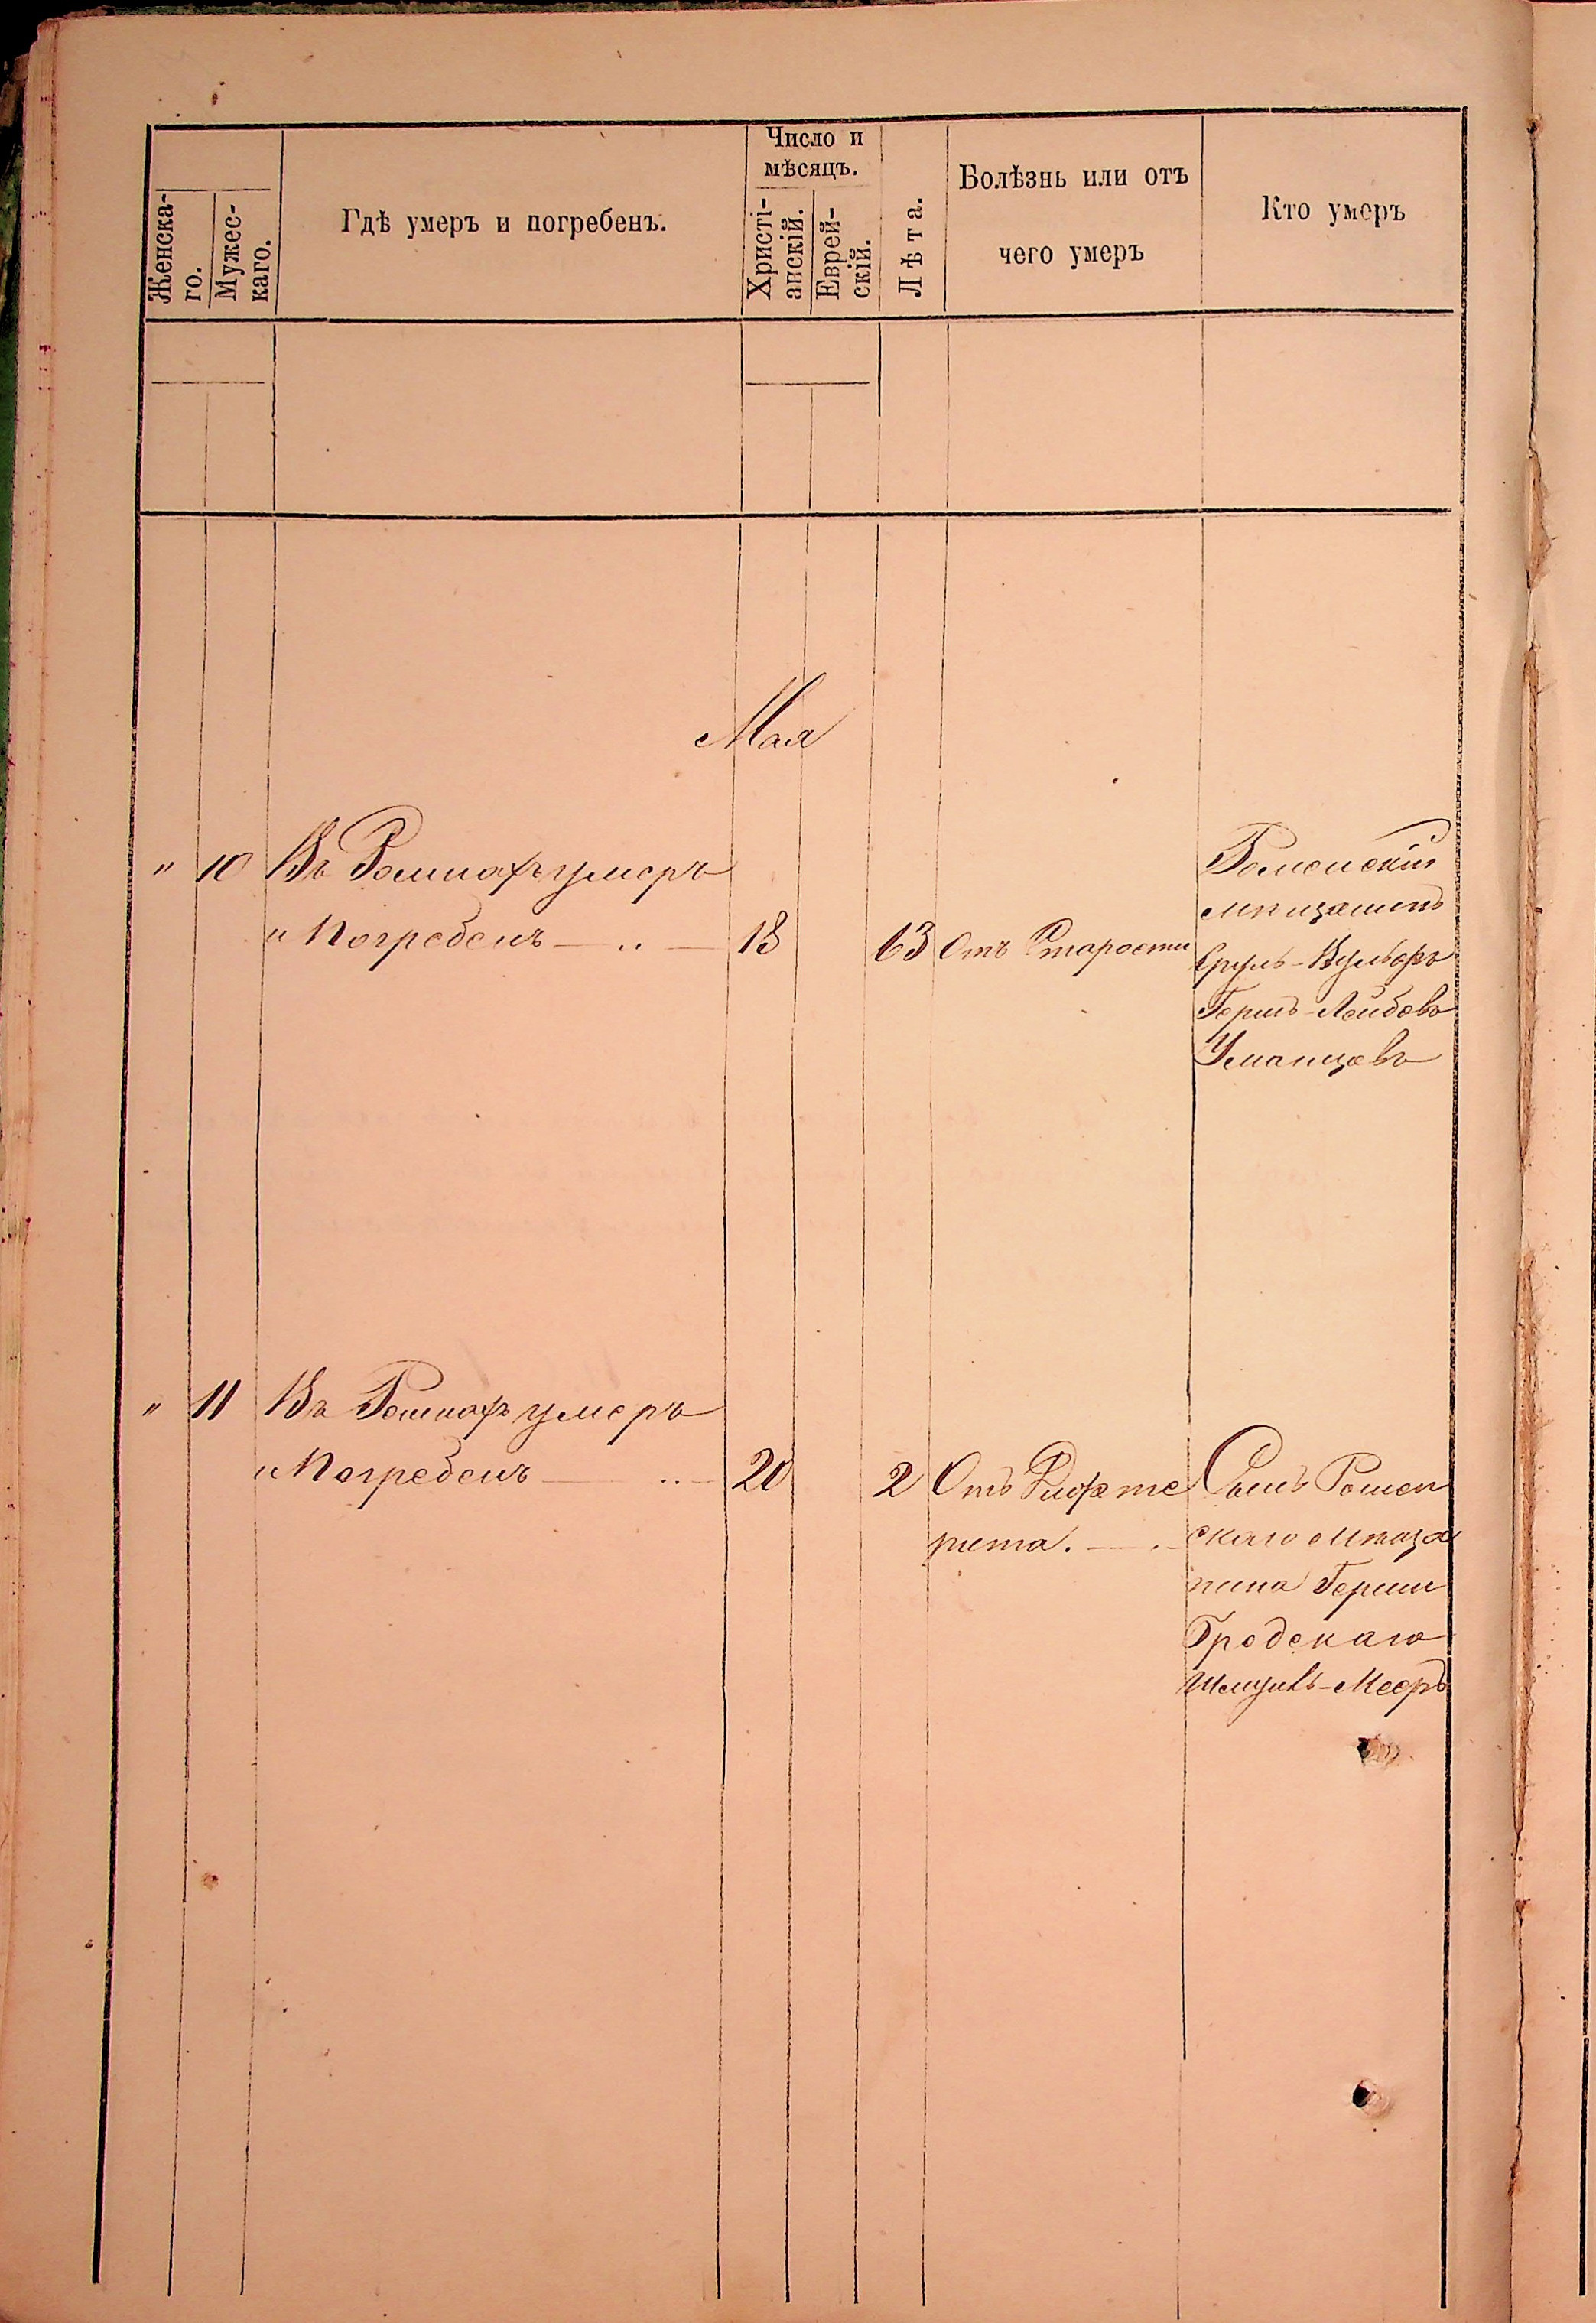 Число и
мѣсяцъ.
Женска-
го.
Мужес-
каго.
Гдѣ умеръ и погребенъ.
Христі-
анскій.
Еврей-
скій.
Лѣта.
Болѣзнь или отъ
чего умеръ
Кто умеръ
Мая
" 10 Въ Ромнахъ умеръ
и Погребенъ — .. — 18 63 Отъ Старости
Роменскій
мѣщанинъ
Сруль-Вульфъ
Герша-Лейбовъ
Уманцовъ
" 11 Въ Ромнахъ умеръ
и Погребенъ — .. — 20 2 Отъ Дифте
рита. — . —
Сынъ Ромен
скаго мѣща
нина Герша
Бродскаго
Шмуиль-Мееръ